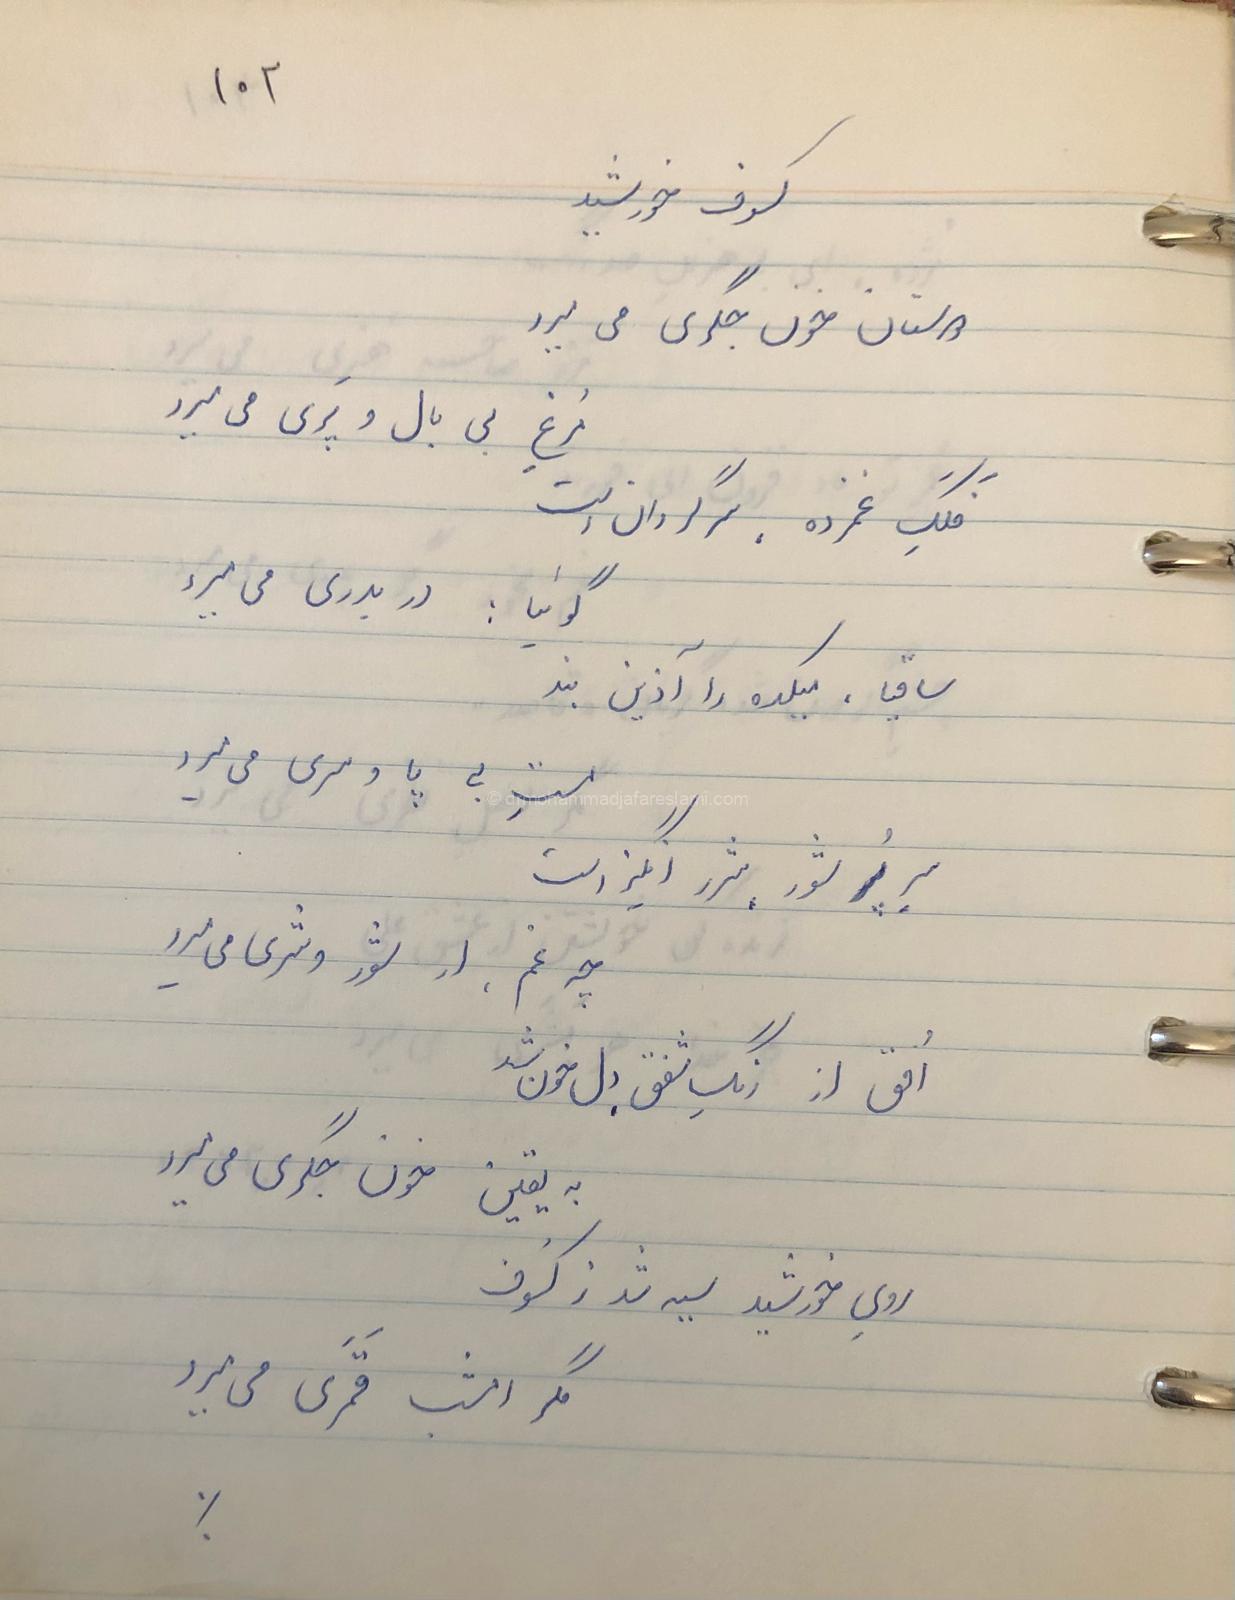 ۱۰۲
کسوف خورشید
دوستان خون جگری می میرد
مُرغِ بی بال و پَری می میرد
فَلَکِ غمزده ، سرگردان است
گوئیا : در بدری می میرد
ساقیا ، میکده را آذین بند
مستِ بی پا و سری می میرد
سرِ پُر شور ، شرر انگیز است
چه غم ، ار شور و شری می میرد
اُفق از رنگِ شفق ، دل خون شد
به یقین خون جگری می میرد
رویِ خورشید سیه شد ز کُسوف
مگر امشب قَمَری می میرد
٪
© drmohammadjafareslami.com